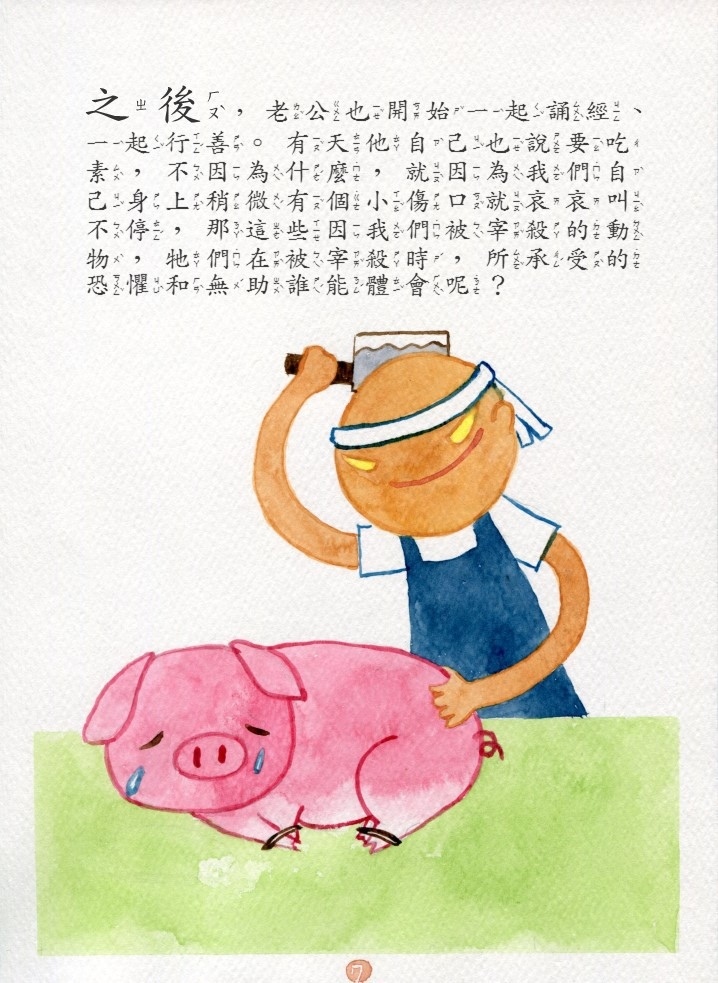 之後，老公也開始一起誦經、
一起行善。有天他自己也說要吃
素，不因為什麼，就因為我們自
己身上稍微有個小傷口就哀哀叫
不停，那這些因我們被宰殺的動
物，牠們在被宰殺時，所承受的
恐懼和無助誰能體會呢？
7